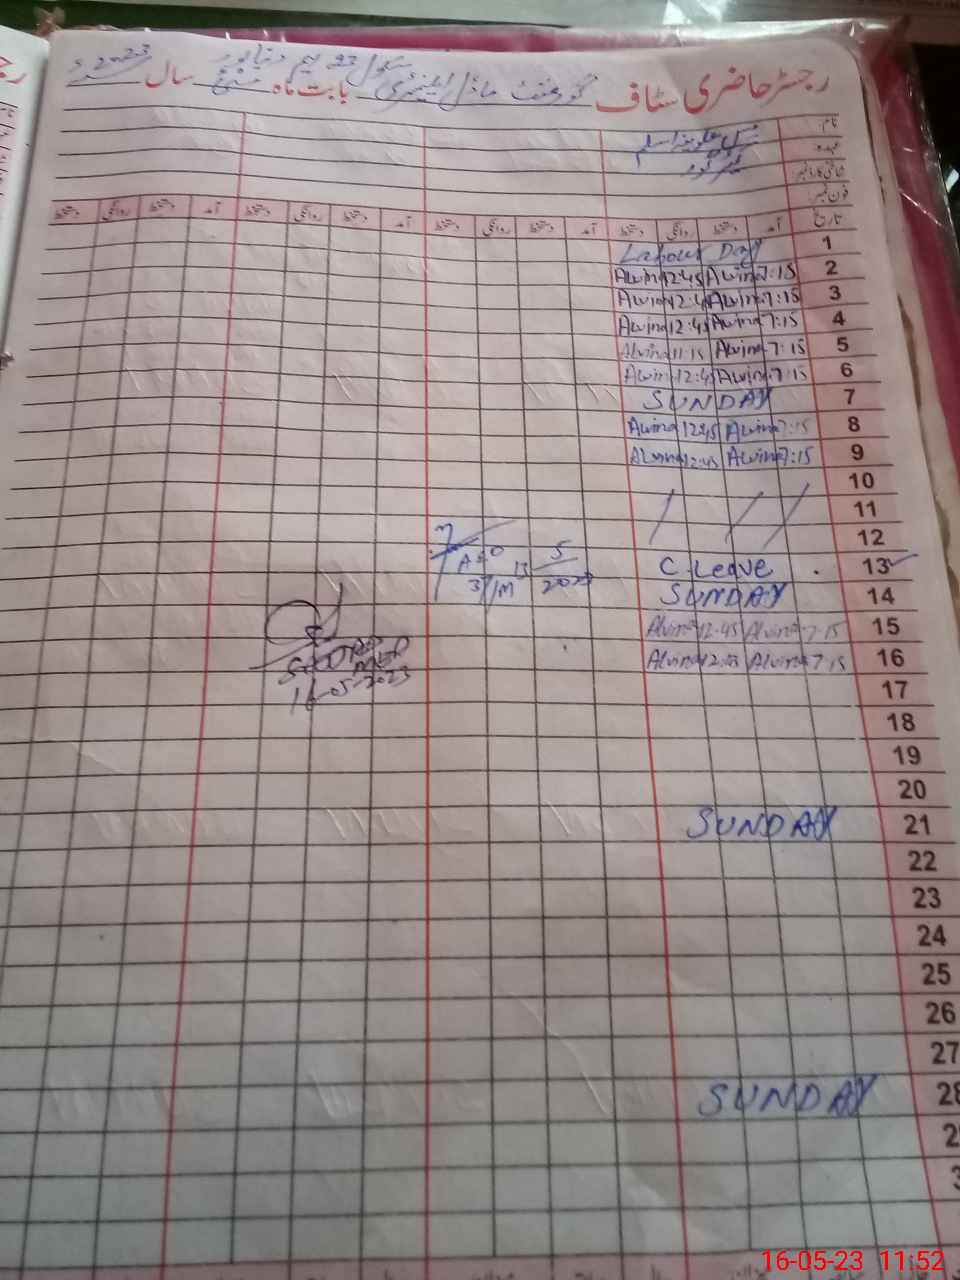 رجسٹر حاضری سٹاف گورنمنٹ ماڈل ایلیمنٹری سکول 23 ایم بابت ماہ مئی سال 2023ء
نام
عہدہ
شناختی کارڈ نمبر
فون نمبر
تاریخ آمد دستخط روانگی دستخط آمد دستخط روانگی دستخط آمد دستخط روانگی دستخط آمد دستخط روانگی دستخط
1 Labour Day
2 Alvina 12:45 Alvina 7:15
3 Alvina 12:4 Alvina 7:15
4 Alvina 12:45 Alvina 7:15
5 Alvina 11:15 Alvina 7:15
6 Alvina 12:45 Alvina 7:15
7 SUNDAY
8 Alvina 12:45 Alvina 7:15
9 Alvina 12:45 Alvina 7:15
10
11
12
13 C. Leave
AEO
5
2023
14 SUNDAY
15 Alvina 12:45 Alvina 7:15
16 Alvina 12:45 Alvina 7:15
16-05-2023
17
18
19
20
21 SUNDAY
22
23
24
25
26
27
28 SUNDAY
16-05-23 11:52